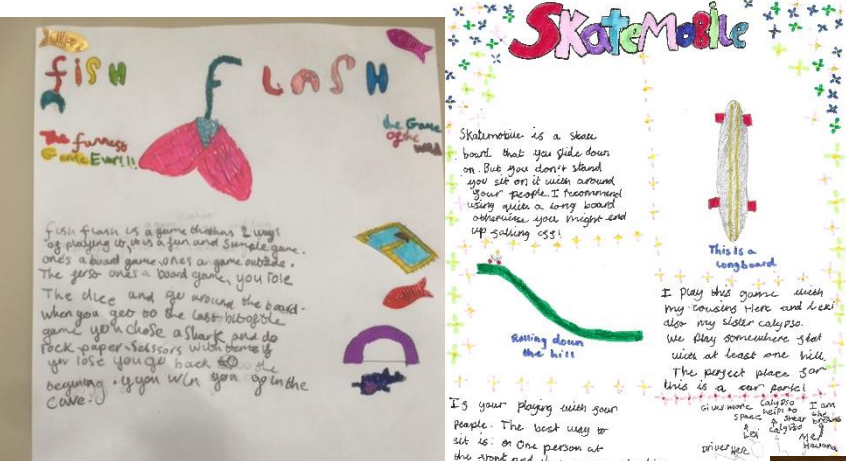 fISH FLASH
The funness
Game Ever!!!
the Game
of the
fish flash is a game thathas 2 ways
of playing it, it is a fun and simple game.
ones a board game, ones a game outside.
The ferst ones a board game, you role
The dice and go around the board.
when you get to the last bit of the
game you chose a shark and do
rock-paper-sissors with
you lose you go back to the
begining. if you win you go in the
cave.
SkateMobile
Skatemobile is a skate
board that you slide down
on. But you don't stand
you sit on it with around
four people. I recommend
using quite a long board
otherwise you might end
up falling off!
This is a
longboard
Rolling down
the hill
I play this game with
my cousins Here and Lexi
also my sister calypso.
We play somewhere flat
with at least one hill.
The perfect place for
this is a car park!
If your playing with four
people. The best way to
sit is: One person at
the front and
Gives more
space
Calypso
helps to
steer
I am
the
Lexi
Calypso
Me!
Driver Here